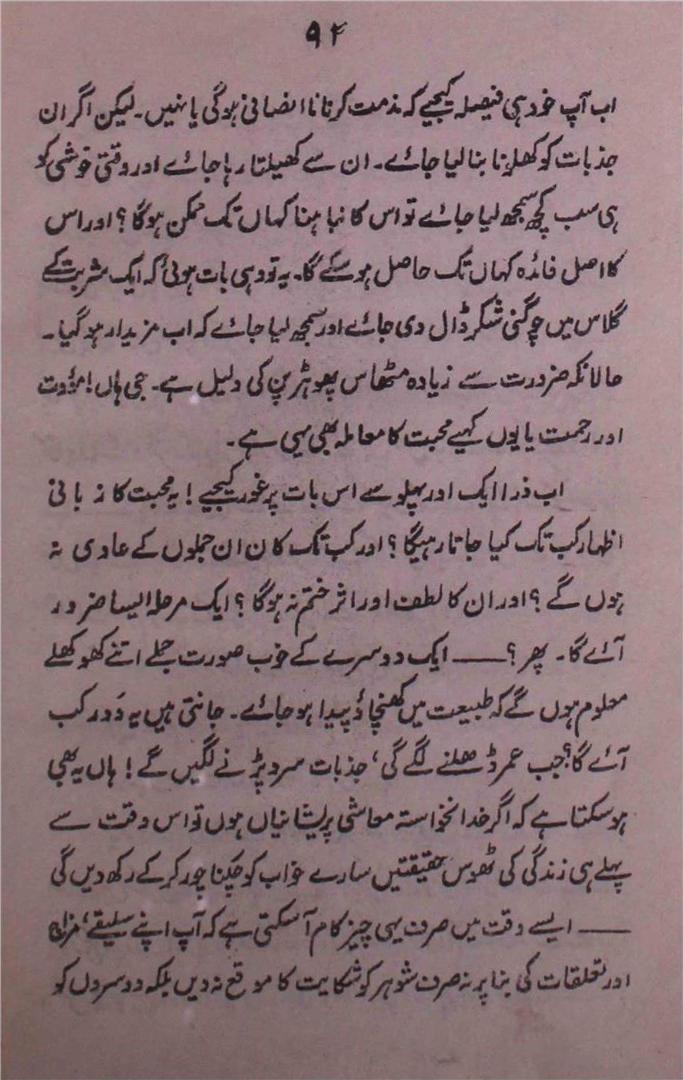 ۹۴
اب آپ خود ہی فیصلہ کیجیے کہ مذمت کرنا ناانصافی ہوگی یا نہیں۔ لیکن اگر ان
جذبات کو کھلونا بنا لیا جائے۔ ان سے کھیلتا رہا جائے اور وقتی خوشی کو
ہی سب کچھ سمجھ لیا جائے تو اس کا نباہنا کہاں تک ممکن ہوگا؟ اور اس
کا اصل فائدہ کہاں تک حاصل ہو سکے گا۔ یہ تو وہی بات ہوئی کہ ایک شربت کے
گلاس میں چوگنی شکر ڈال دی جائے اور سمجھ لیا جائے کہ اب مزیدار ہو گیا۔
حالانکہ ضرورت سے زیادہ مٹھاس پھوہڑپن کی دلیل ہے۔ جی ہاں! مؤدت
اور رحمت یا یوں کہیے محبت کا معاملہ بھی یہی ہے۔
اب ذرا ایک اور پہلو سے اس بات پر غور کیجیے! یہ محبت کا زبانی
اظہار کب تک کیا جاتا رہیگا؟ اور کب تک کان ان جملوں کے عادی نہ
ہوں گے؟ اور ان کا لطف اور اثر ختم نہ ہوگا؟ ایک مرحلہ ایسا ضرور
آئے گا۔ پھر؟ —— ایک دوسرے کے خوب صورت جملے اتنے کھوکھلے
معلوم ہوں گے کہ طبیعت میں کھنچاؤ پیدا ہو جائے۔ جانتی ہیں یہ دَور کب
آئے گا؟ جب عمر ڈھلنے لگے گی، جذبات سرد پڑنے لگیں گے! ہاں یہ بھی
ہو سکتا ہے کہ اگر خدانخواستہ معاشی پریشانیاں ہوں تو اس وقت سے
پہلے ہی زندگی کی ٹھوس حقیقتیں سارے خواب کو چکنا چور کر کے رکھ دیں گی
—— ایسے وقت میں صرف یہی چیز کام آ سکتی ہے کہ آپ اپنے سلیقے، مزاج
اور تعلقات کی بنا پر نہ صرف شوہر کو شکایت کا موقع نہ دیں بلکہ دوسروں کو